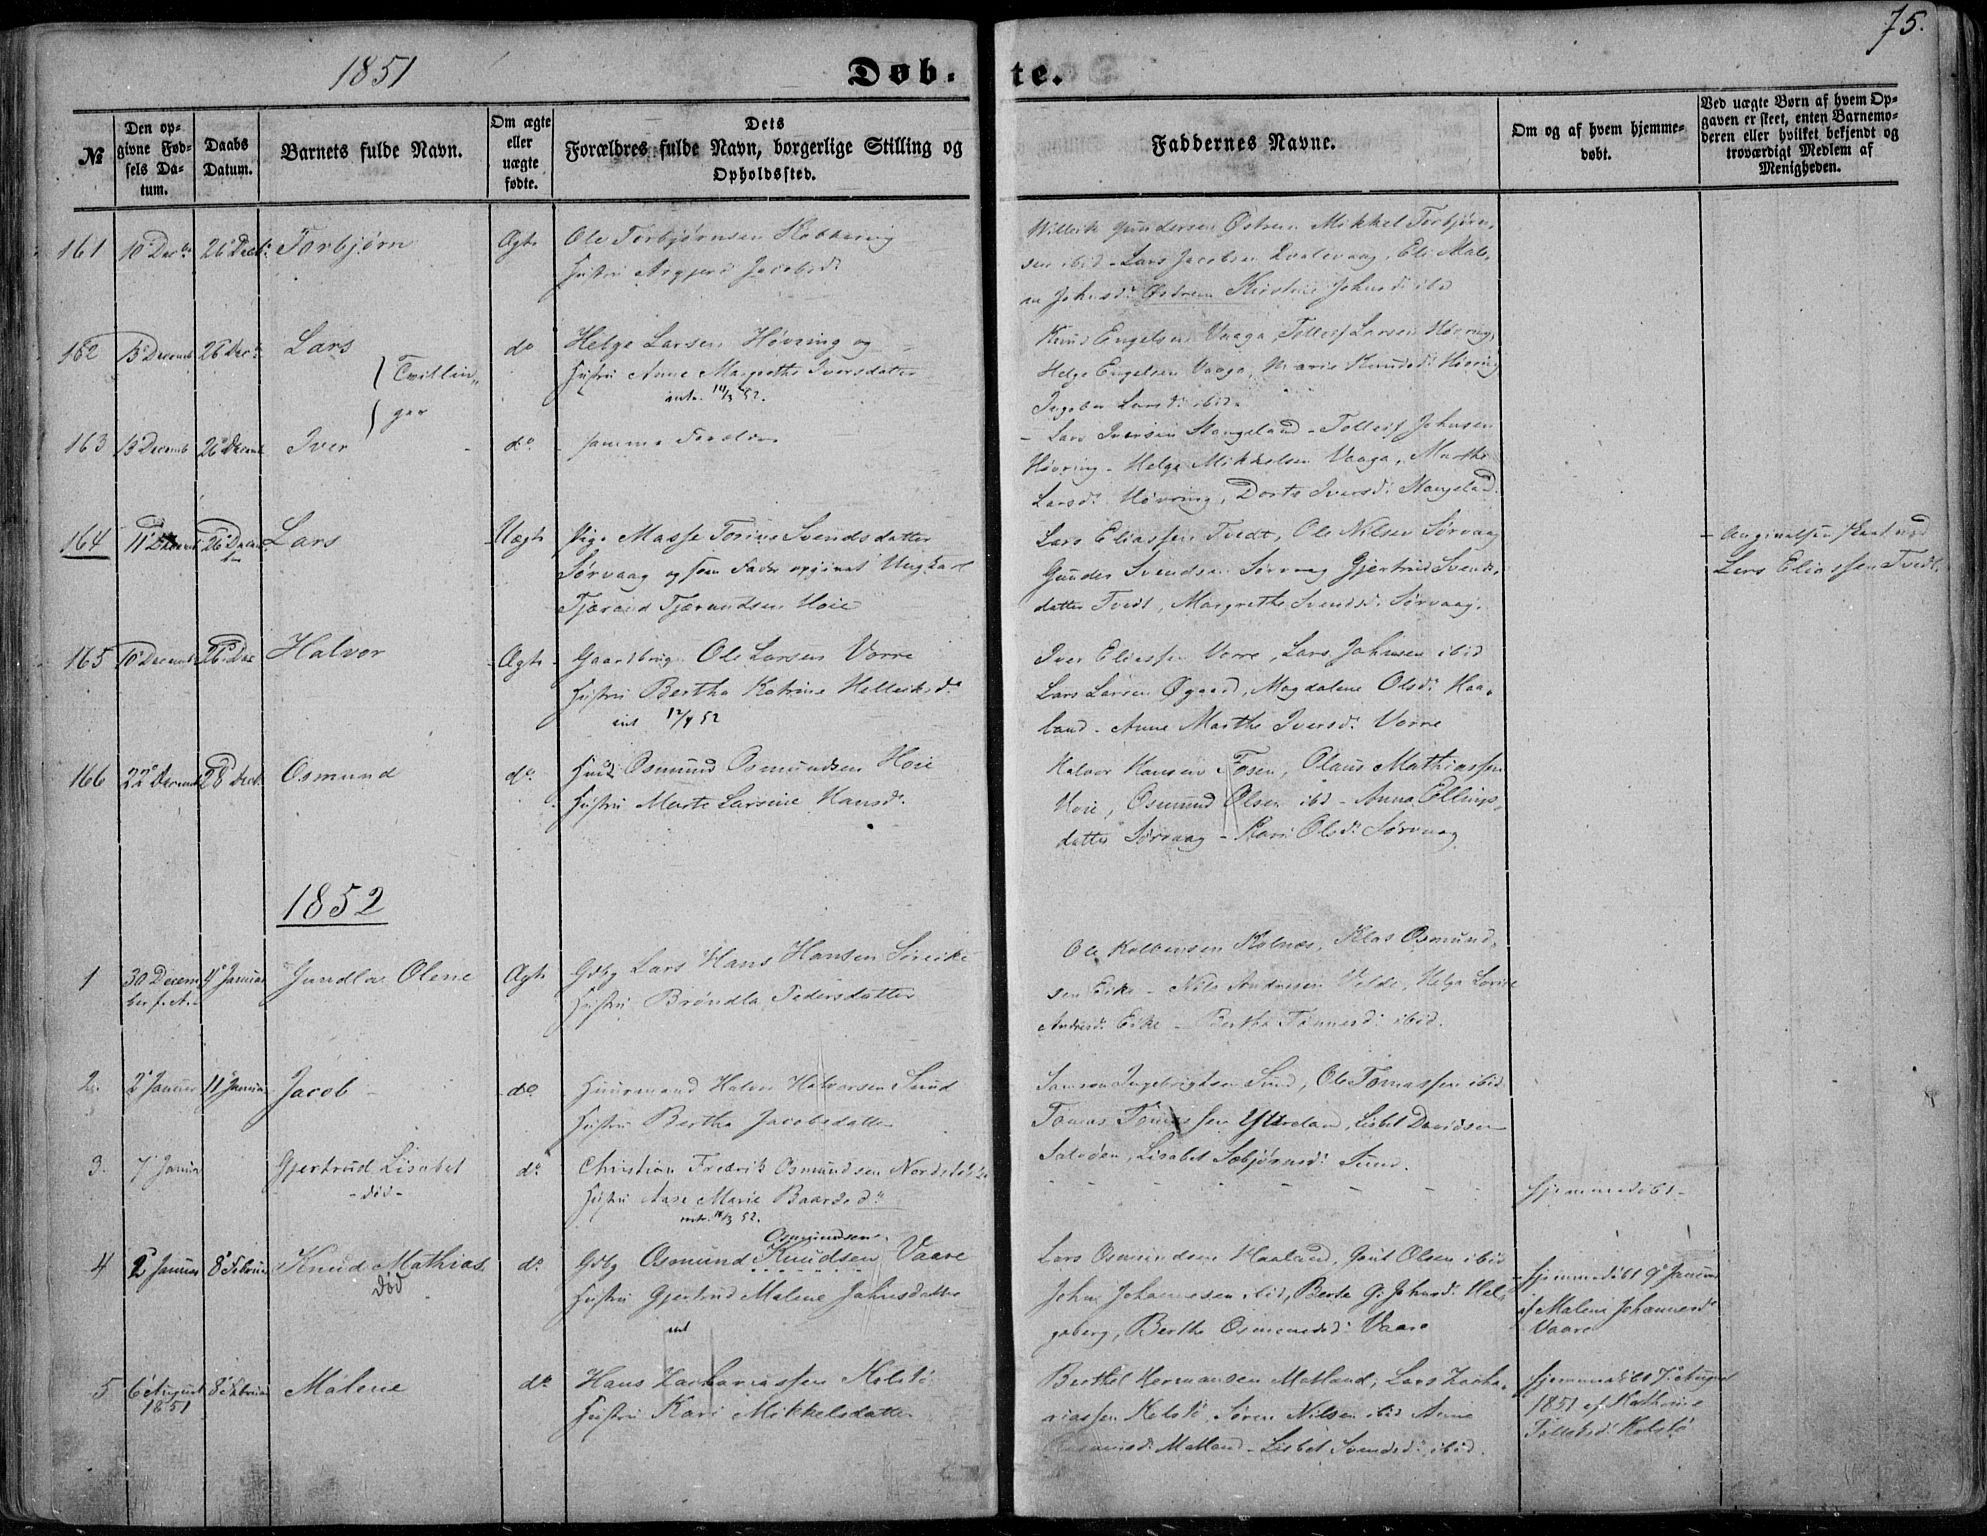 75.
1851
Døb-te.
№
Den op-
givne Fød-
sels Da-
tum.
Daabs
Datum.
Barnets fulde Navn.
Om ægte
eller
uægte
fødte.
Dets
Forældres fulde Navn, borgerlige Stilling og
Opholdssted.
Faddernes Navne.
Om og af hvem hjemme-
døbt.
Ved uægte Børn af hvem Op-
gaven er skeet, enten Barnemo-
deren eller hvilket bekjendt og
troværdigt Medlem af
Menigheden.
161 10 Decbr 26 Decbr Torbjørn Ægte Ole Torbjørnsen
Hustru Jacobsd:
Gundersen Østrem Mikkel Torbjørn-
sen ibid - Lars Jacobsen Qvalevaag, Eli Male-
ne Johnsd: Østrem Johnsd: ibid
162 13 Decemb 26 Decbr Lars do Helge Larsen Høvring og
Hustru Anne Margrethe Iversdatter
14/3 52.
{ Tvillin-
{ ger
Knud Engelsen Vaaga, Tollef Larsen Høvring,
Helge Engelsen Vaaga, Marie Knudsd: Høvring
Ingebor Larsd: ibid.
163 13 Decemb 26 Decemb Iver do. samme Forældre
- Lars Iversen Stangeland - Tollef Johnsen
Høvring - Helge Mikkelsen Vaaga, Marthe
Larsd: Høvring, Dorte Iversd: Stangeland.
164 11 Decemb 26 Decem Lars Uægte Pige Masse Svendsdatter
Sørvaag og som Fader opgivet Ungkarl
Tjærand Tjærandsen Hoie
Lars Eliassen Tvedt, Ole Nilsen Sørvaag
Gunder Svendsen Sørvaag Gjertrud Svends-
datter Tvedt, Margrethe Svendsd: Sørvaag.
- Angivelsen skeet ved
Lars Eliassen Tvedt.
165 10 Decemb 26 Dec Halvor Ægte Gaardbrug. Ole Larsen Vorre
Hustru Bertha Katrine Helleiksd:
12/4 52
Iver Eliassen Vorre, Lars Johnsen ibid
Lars Larsen Øgaard, Magdalene Olsd: Haa-
land - Anne Marthe Iversd: Vorre
166 22 Decemb 28 Decb. Osmund do. Osmund Osmundsen Hoie
Hustru Marte Larsine Hansd:
Halvor Hansen Fosen, Olaus Mathiassen
Hoie, Osmund Olsen ibid - Anna Ellings-
datter Sørvaag - Kari Olsd: Sørvaag
1852
1 30 Decem- 4 Januar Gundla Olene Ægte Gdbg Lars Hans Hansen
ber f. A. Hustru Brøndla Pedersdatter
Ole Kolbensen Kolnæs, Klas Osmund-
sen Eike - Nils Andresen Velde, Helga
Andresd: Eike - Bertha ibid.
2. 2 Januar 11 Januar Jacob - do. Huusmand Halvor Halvorsen Sund
Hustru Bertha Jacobsdatter
Samson Ingebrigtsen Sund, Ole Tomassen ibid
Tomas Tomassen Ytreland, Lisbet Davidsen
Lisabet Sund.
3. 7 Januar Gjertrud Lisabet do. Christian Fredrik Osmundsen
- død - Hustru Aase Marie Baardsd:
14/3 52.
Hjemmedøbt -
4 2 Januar 8 Februar Knud Mathias do. Gdbg Osmund Knudsen Vaare
Osmundsen
død Hustru Gjertrud Malene Johnsdatter
Lars Osmundsen Haaland, Gout Olsen ibid
John Johannesen ibid, Berte G. Johnsd: Hel-
gaberg, Berthe Osmundsd: Vaare
Hjemmedøbt 9 Januar
af Malene Johannesd:
Vaare
5 6 August 8 Februar Malene do. Hans Zachariassen Kolstø
1851 Hustru Kari Mikkelsdatter
Berthel Hermansen Matland, Lars Zacha-
riassen Kolstø, Søren Nilsen ibid Anne
Matland - Lisbet Svendsd: ibid.
Hjemmedøbt 7 August
1851 af Kathrine
Kolstø